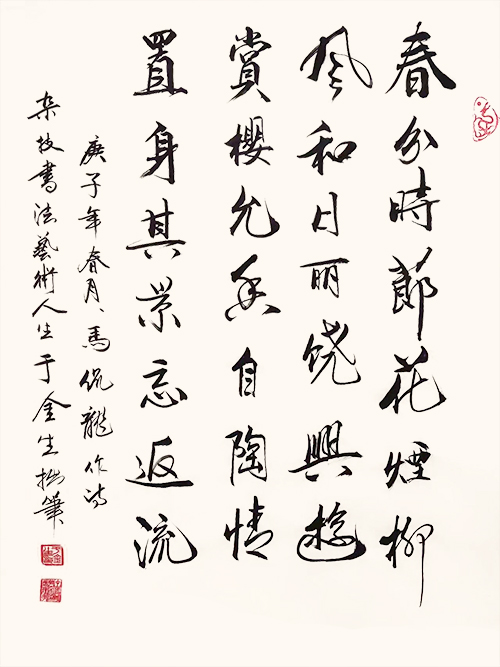 春分時節花煙柳
風和日丽饶興遊
賞櫻允香自陶情
置身其景忘返流
庚子年春月、馬侃龍作詩
杂技書法藝術人生于金生拙筆